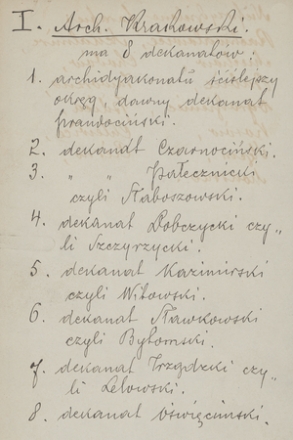 I. Arch. Krakowski.
ma 8 dekanatów:
1. archidyakonatu ściślejszy
okręg, dawny dekanat
prandociński.
2. dekanat Czarnociński.
3. " " Pałecznicki
czyli Naboszowski.
4. dekanat Dobczycki czy„
li Szczyrzycki.
5. dekanat Kazimirski
czyli Witowski.
6. dekanat Sławkowski
czyli Bytomski.
7. dekanat Irządzki czy„
li Lelowski.
8. dekanat Oświęcimski.